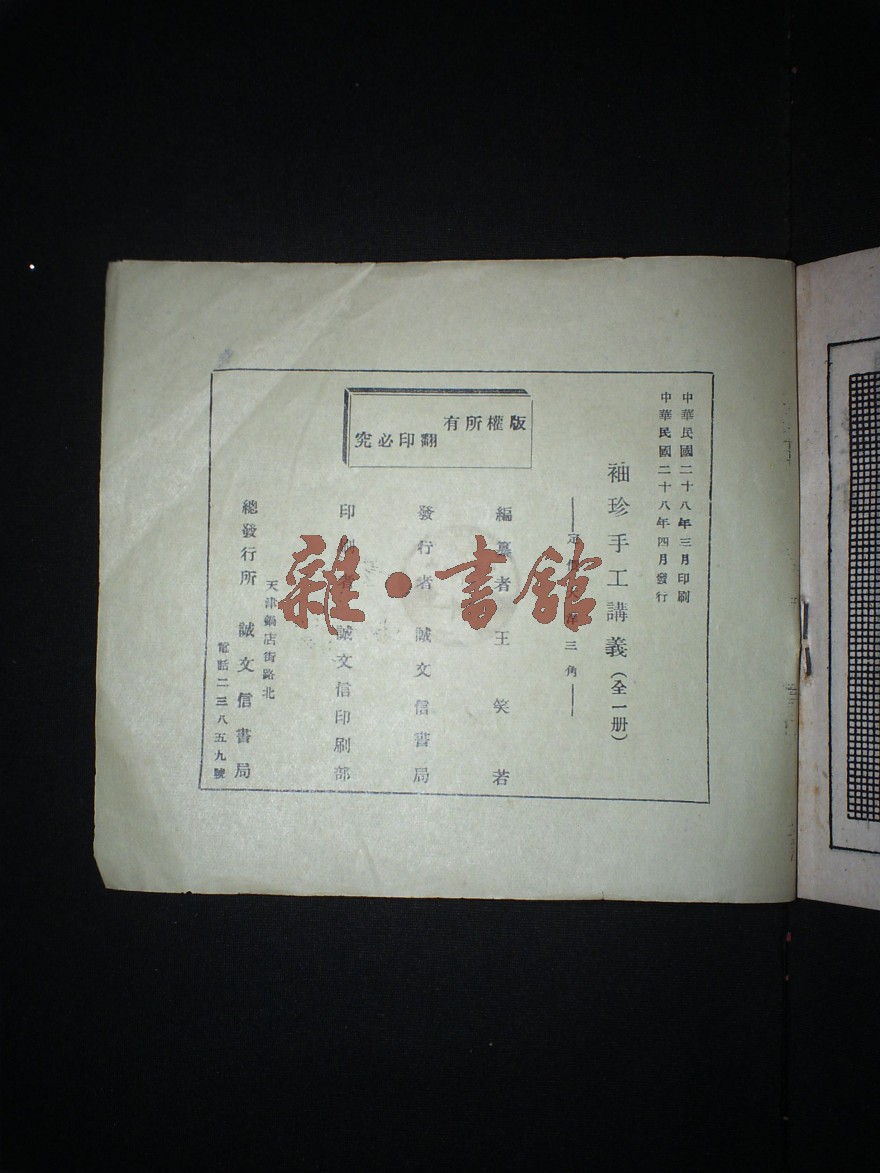 中華民國二十八年三月印刷
中華民國二十八年四月發行
袖珍手工講義（全一册）
定價大洋三角
版權所有
翻印必究
編纂者 王笑若
發行者 誠文信書局
印刷者 誠文信印刷部
天津鍋店街路北
總發行所 誠文信書局
電話二三八五九號
雜·書館